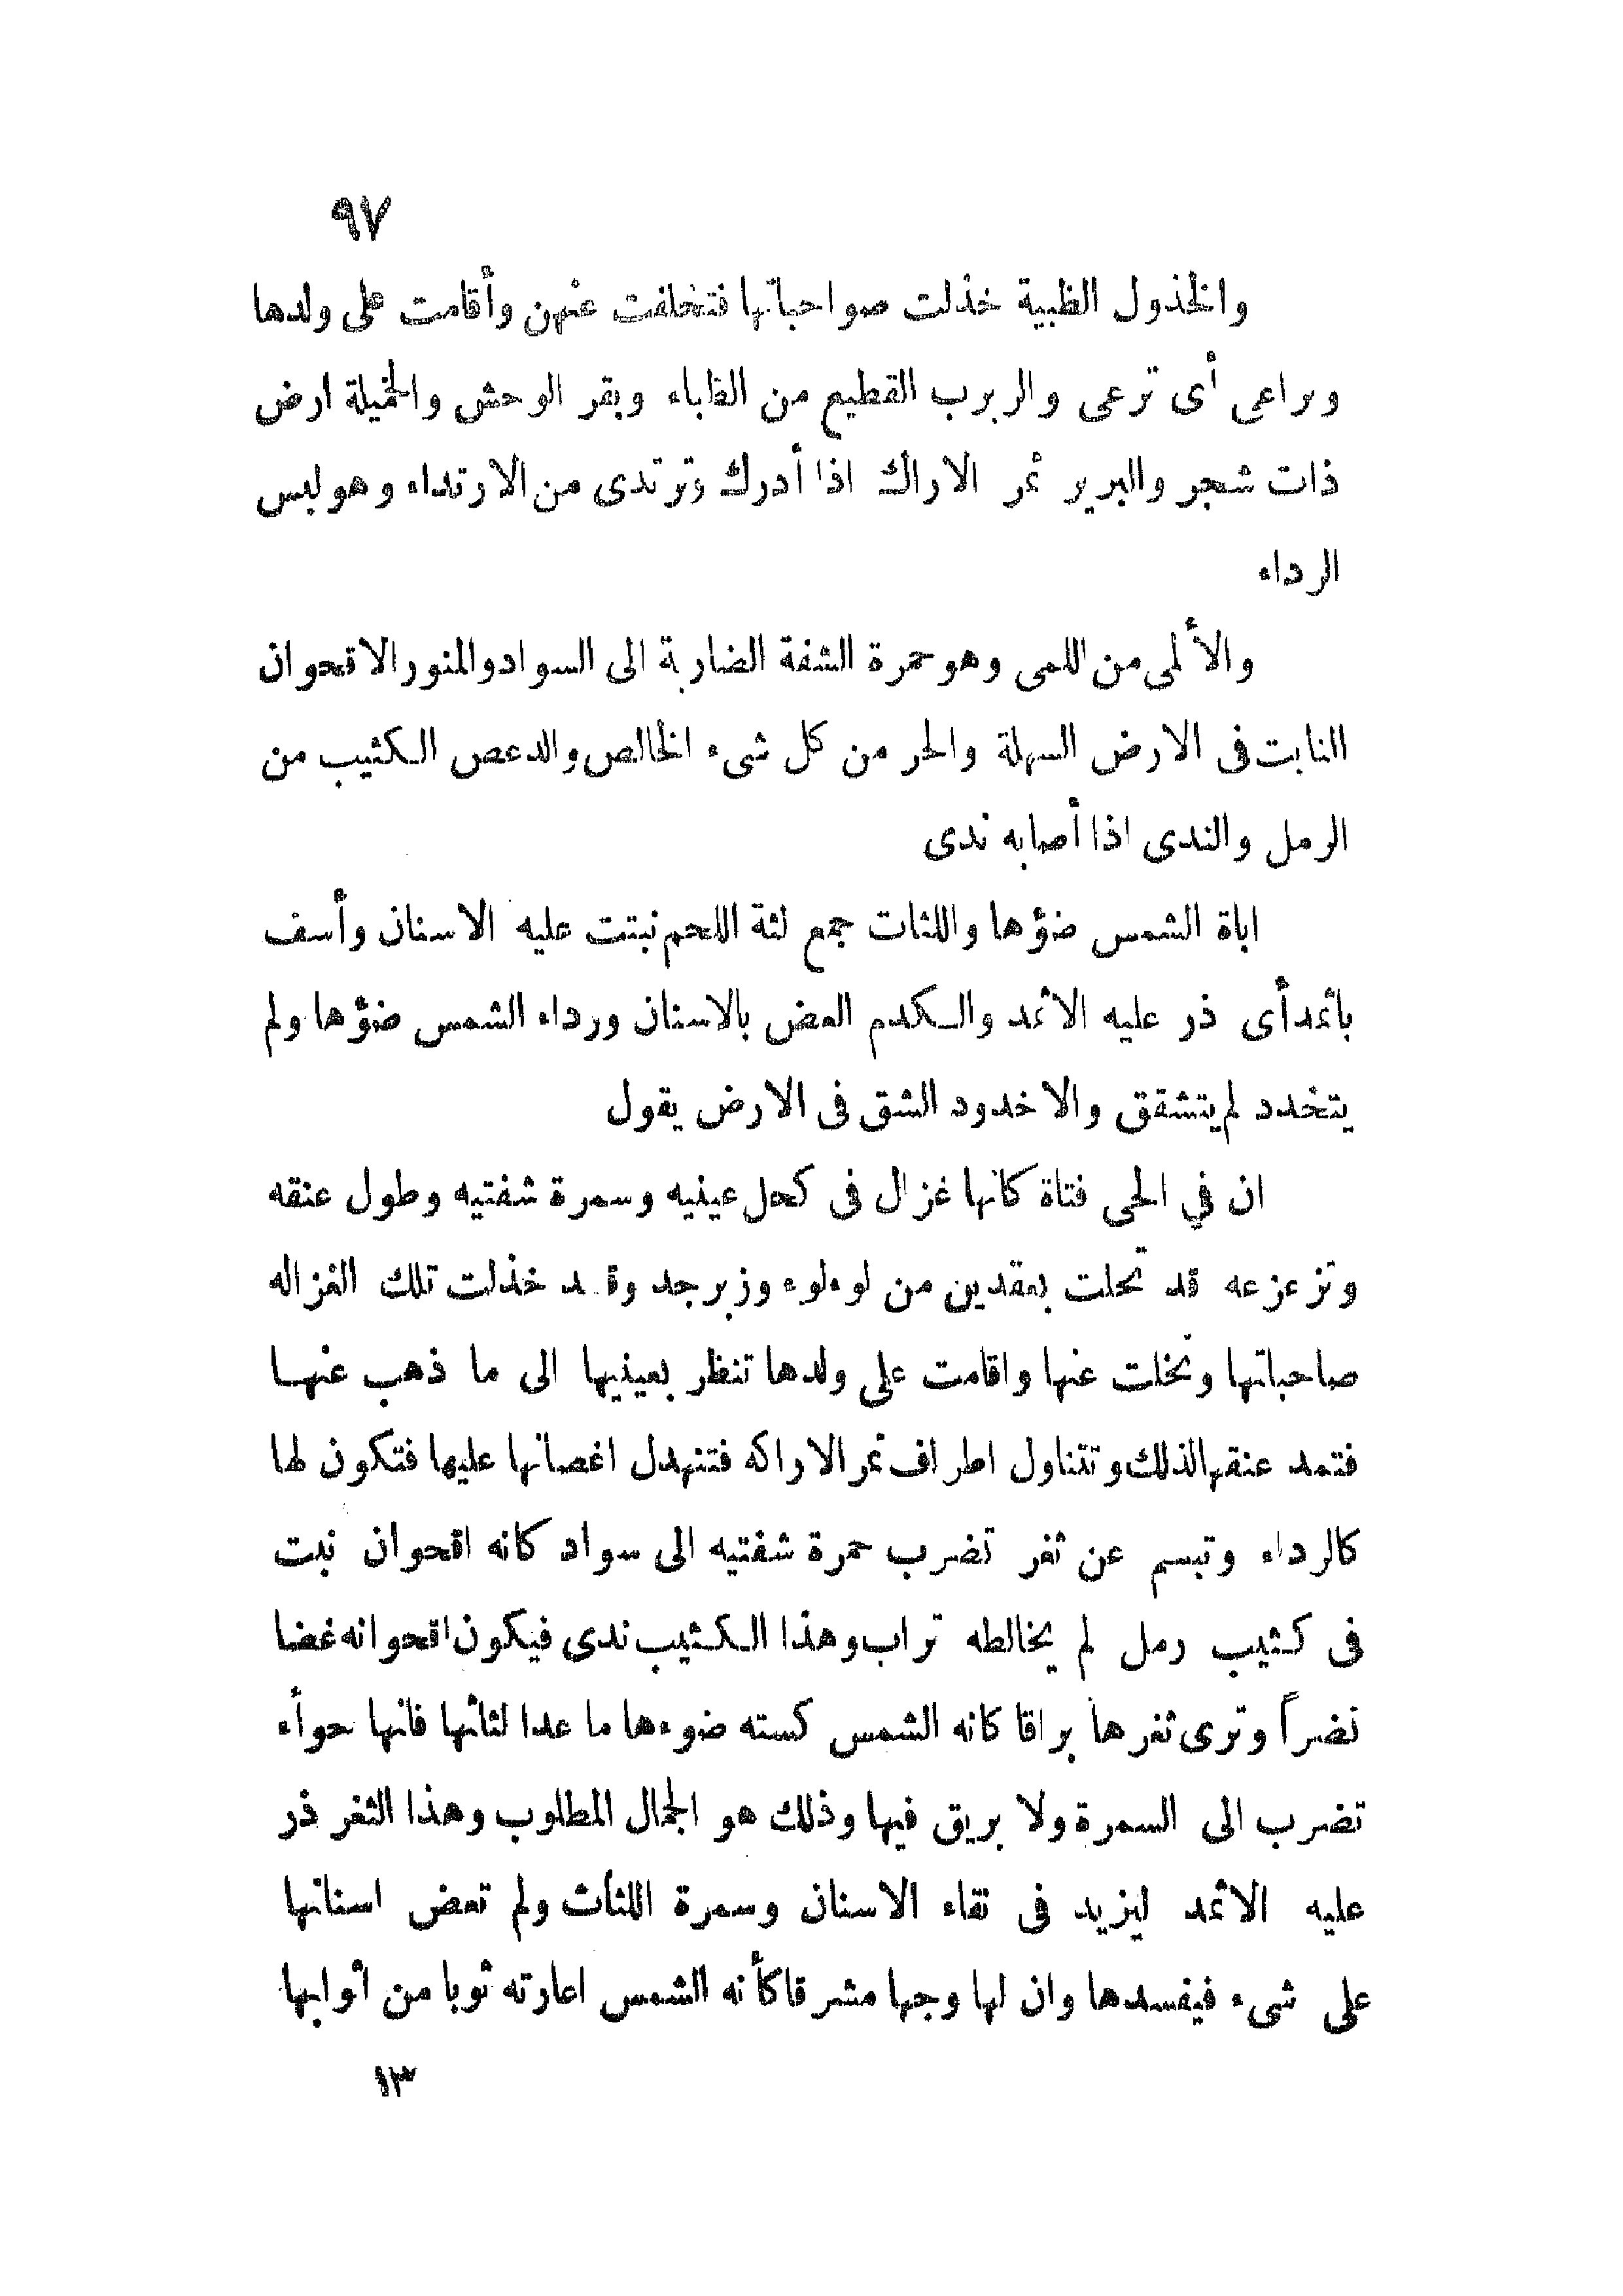 ٩٧
والخذول الظبية خذلت صواحباتها فتخلفت عنهن وأقامت على ولدها
وتراعى أى ترعى والربرب القطيع من الظباء وبقر الوحش والخميلة ارض
ذات شجر والبرير ثمر الاراك اذا أدرك وترتدى من الارتداء وهو لبس
الرداء
والألمى من اللمى وهو حمرة الشفة الضاربة الى السواد والمنور الاقحوان
النابت فى الارض السهلة والحر من كل شىء الخالص والدعص الكثيب من
الرمل والندى اذا أصابه ندى
اباة الشمس ضؤها واللثات جمع لثة اللحم نبتت عليه الاسنان وأسف
بأثمد أى ذر عليه الاثمد والكدم العض بالاسنان ورداء الشمس ضؤها ولم
يتخدد لم يتشقق والاخدود الشق فى الارض يقول
ان في الحى فتاة كانها غزال فى كحل عينيه وسمرة شفتيه وطول عنقه
وتزعزعه قد تحلت بعقدين من لوءلوء وزبرجد وقد خذلت تلك الغزاله
صاحباتها وتخلت عنها واقامت على ولدها تنظر بعينيها الى ما ذهب عنها
فتمد عنقها لذلك وتتناول اطراف ثمر الاراكه فتنهدل اغصانها عليها فتكون لها
كالرداء وتبسم عن ثغر تضرب حمرة شفتيه الى سواد كانه اقحوان نبت
فى كثيب رمل لم يخالطه تراب وهذا الكثيب ندى فيكون اقحوانه غضا
نضراً وترى ثغرها براقا كانه الشمس كسته ضوءها ما عدا لثاثها فانها حوأء
تضرب الى السمرة ولا بريق فيها وذلك هو الجمال المطلوب وهذا الثغر ذر
عليه الاثمد ليزيد فى نقاء الاسنان وسمرة اللثاث ولم تعض اسنانها
على شىء فيفسدها وان لها وجها مشرقا كأنه الشمس اعارته ثوبا من اثوابها
١٣